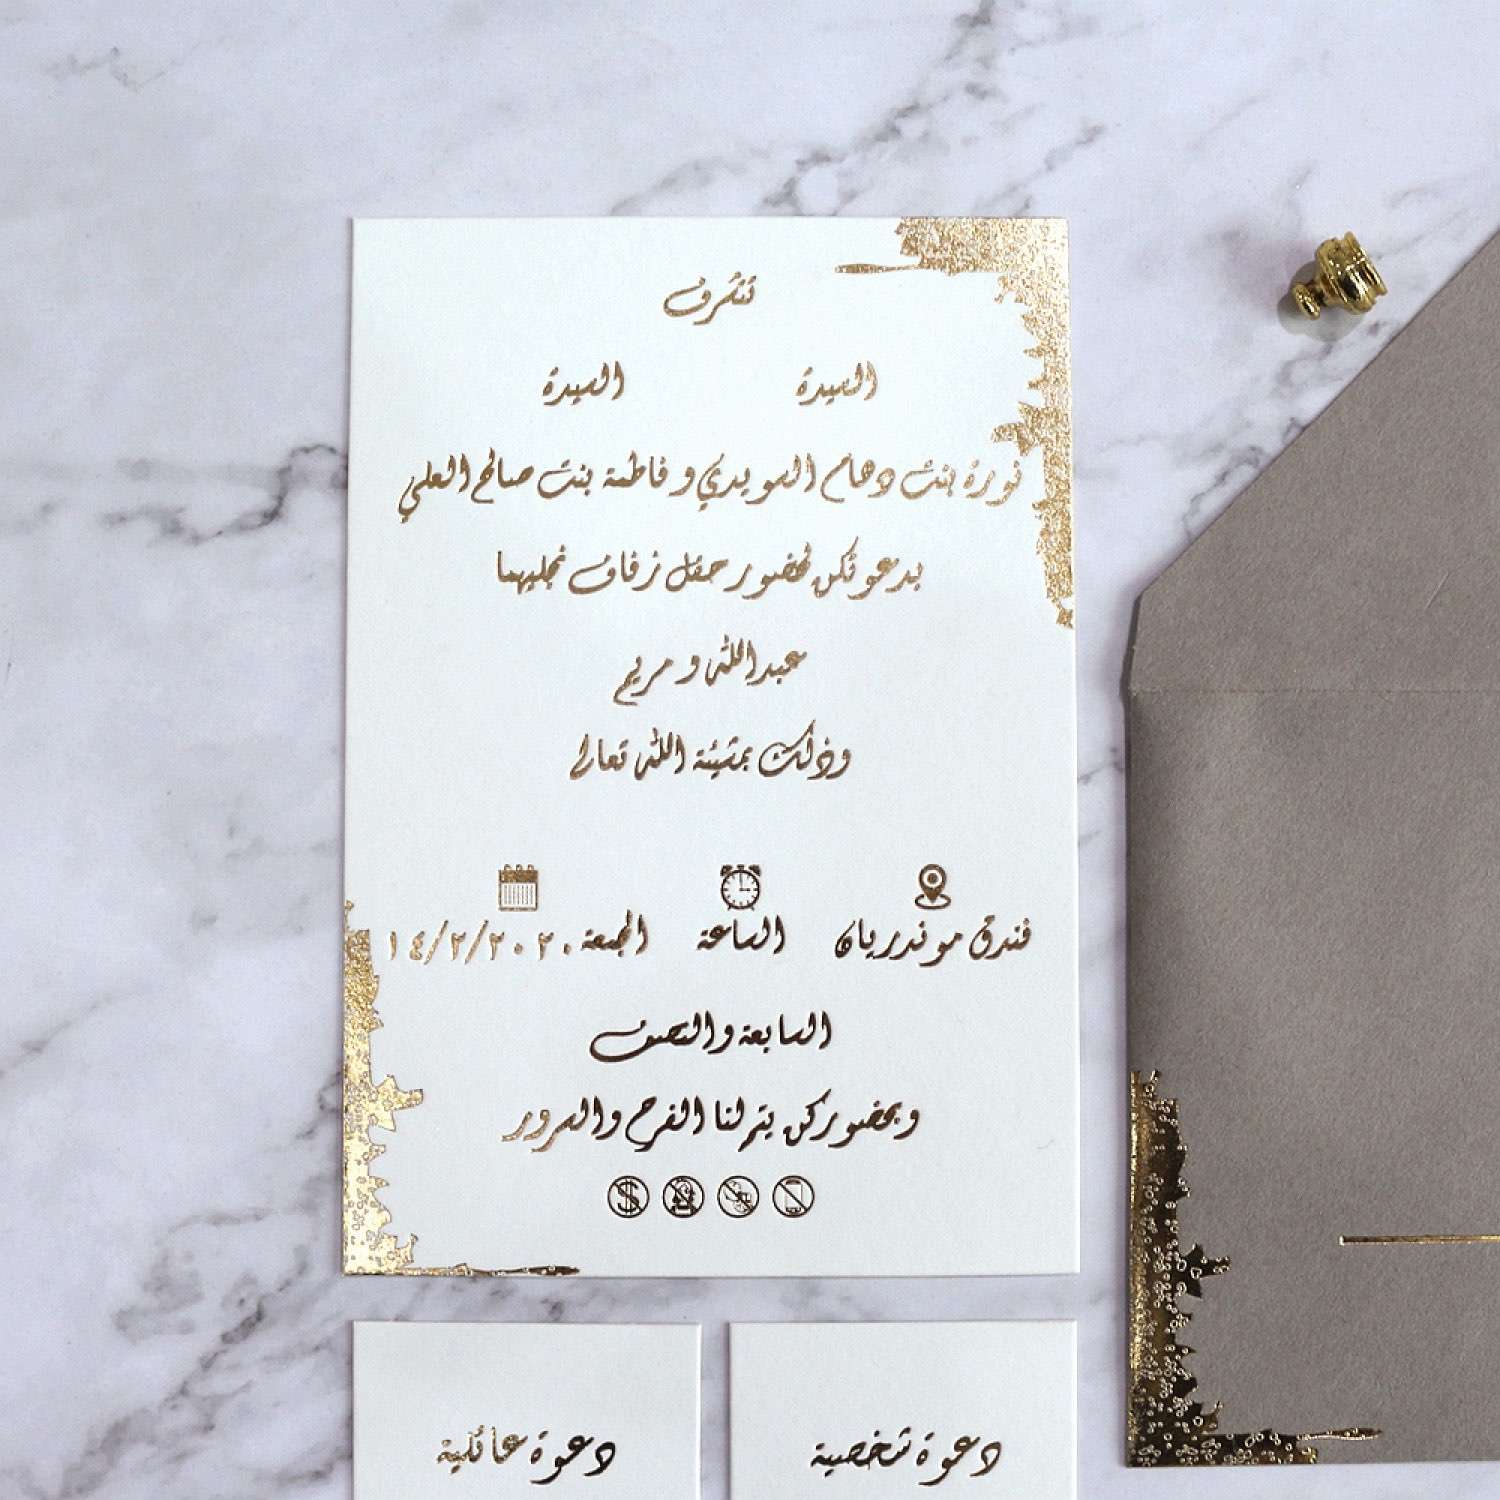 تتشرف
السيدة السيدة
نورة بنت دهام السويدي و فاطمة بنت صالح العلي
بدعوتكن لحضور حفل زفاف نجليهما
عبدالله و مريم
وذلك بمشيئة الله تعالى
فندق موندريان الساعة الجمعة ١٤/٢/٢٠٢٠
السابعة والنصف
وبحضوركن يتم لنا الفرح والسرور
دعوة شخصية دعوة عائلية